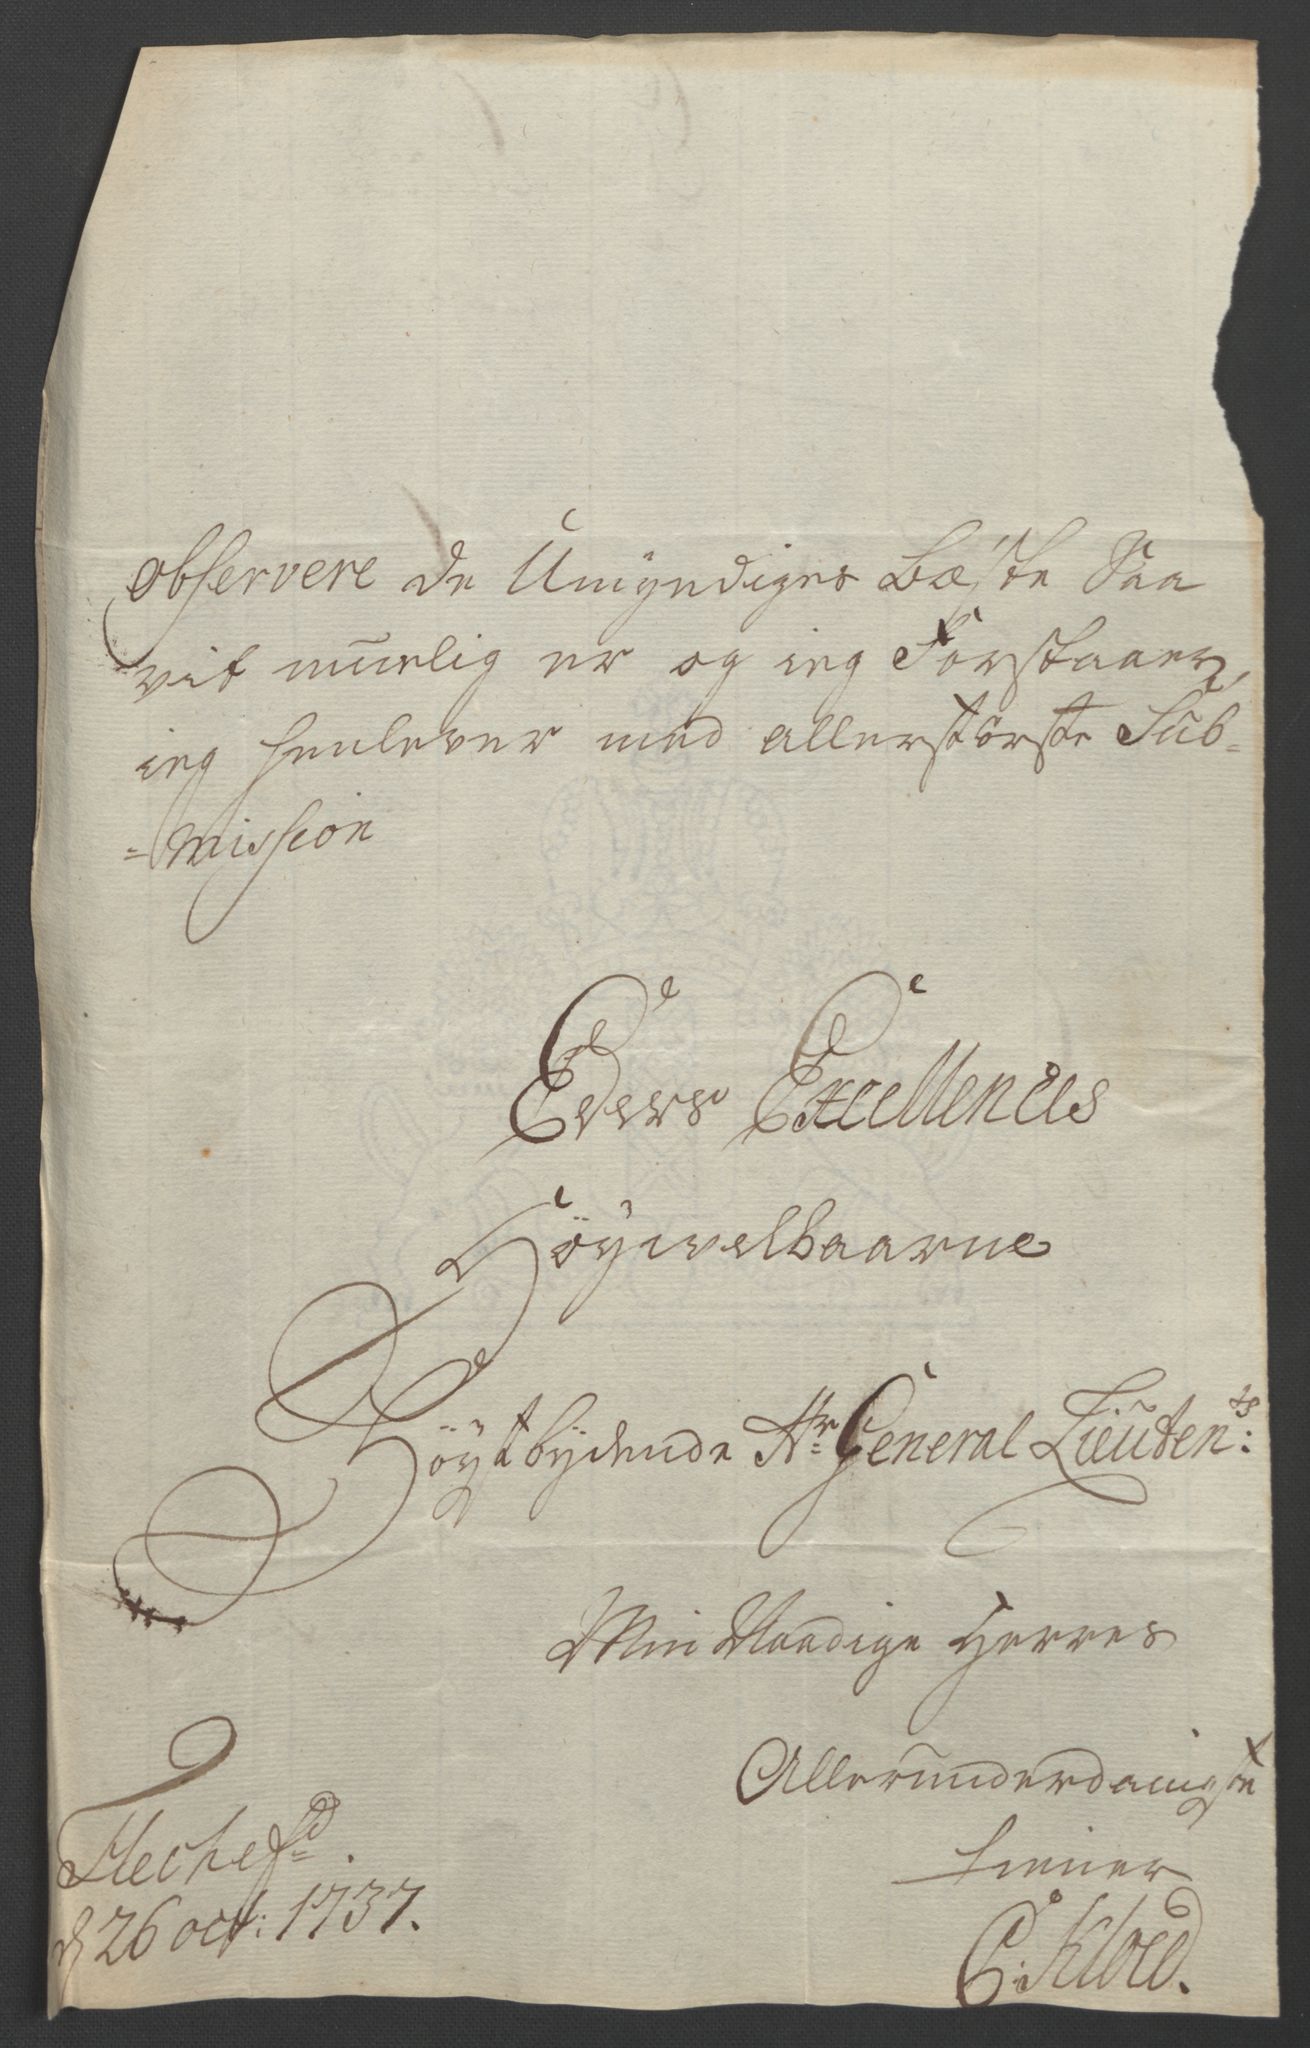 observere de Umyndiges Bæste Saa
vit muelig er og ieg Forstaaer,
ieg henlever med allerstörste Sub-
=mission
Eders Excellences
Höywelbaarne
Höytbydende Hr: General Lieuten:ts
Min Naadige Herres
Allerunderdanigste
tiener
Flechefd.
d 26 oct: 1737.